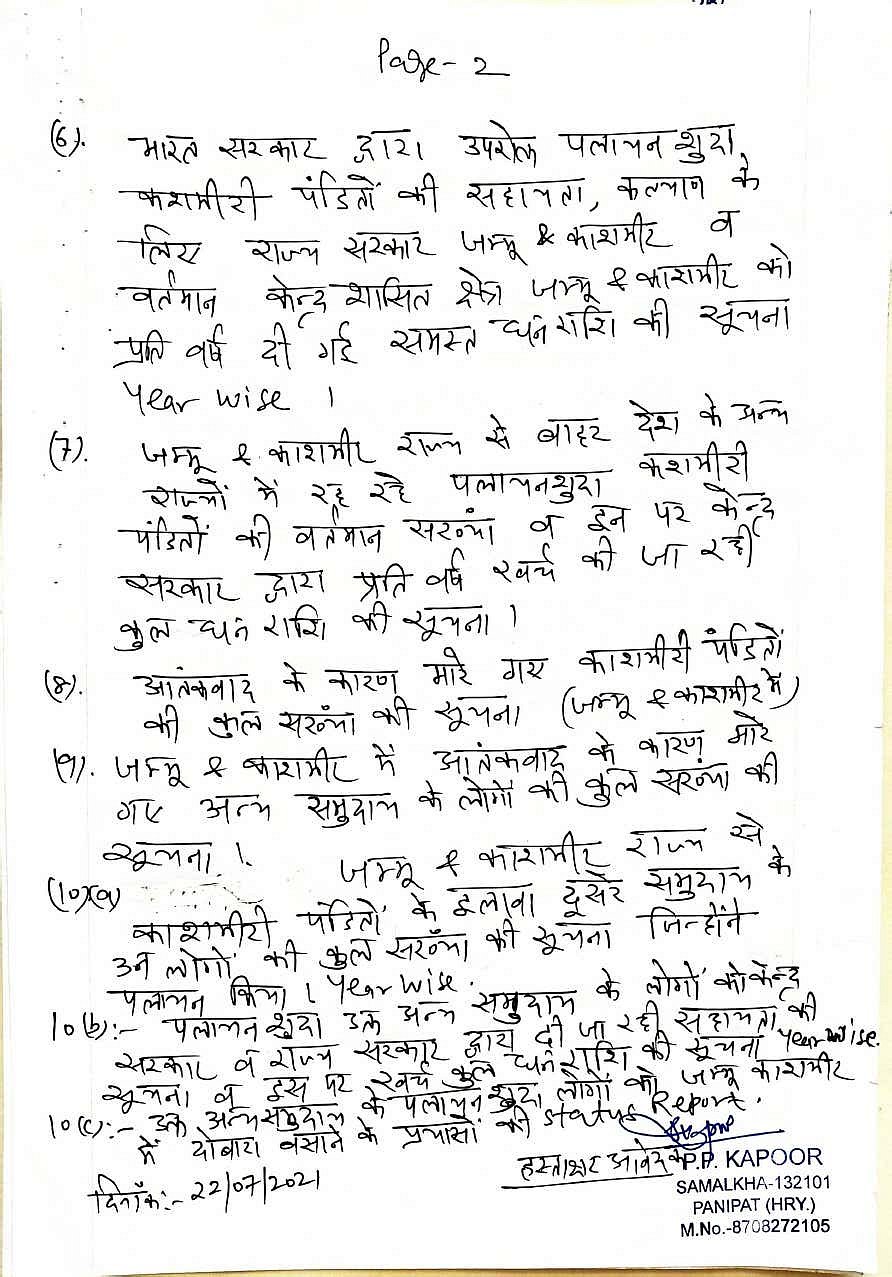 Page - 2
(6). भारत सरकार द्वारा उपरोक्त पलायन शुदा
कशमीरी पंडितों की सहायता, कल्याण के
लिए राज्य सरकार जम्मू & काशमीर व
वर्तमान केन्द्र शासित क्षेत्र जम्मू & काशमीर को
प्रति वर्ष दी गई समस्त धन राशि की सूचना
Year wise ।
(7). जम्मू & काशमीर राज्य से बाहर देश के अन्य
राज्यों में रह रहे पलायनशुदा कशमीरी
पंडितों की वर्तमान संख्या व इन पर केन्द्र
सरकार द्वारा प्रति वर्ष खर्च की जा रही
कुल धन राशि की सूचना ।
(8). आतंकवाद के कारण मारे गए काशमीरी पंडितों
की कुल संख्या की सूचना (जम्मू & काशमीर में)
(9). जम्मू & काशमीर में आतंकवाद के कारण मारे
गए अन्य समुदाय के लोगों की कुल संख्या की
सूचना ।
(10)(a) जम्मू & काशमीर राज्य से
काशमीरी पंडितों के इलावा दूसरे समुदाय के
उन लोगों की कुल संख्या की सूचना जिन्होंने
पलायन किया । Year wise.
10(b):- पलायन शुदा उक्त अन्य समुदाय के लोगों को केन्द्र
सरकार व राज्य सरकार द्वारा दी जा रही सहायता की
सूचना व इस पर खर्च कुल धन राशि की सूचना Year wise.
10(c):- उक्त अन्य समुदाय के पलायन शुदा लोगों को जम्मू काशमीर
में दोबारा बसाने के प्रयासों की Status Report.
हस्ताक्षर आवेदक
P.P. KAPOOR
SAMALKHA-132101
PANIPAT (HRY.)
M.No.-8708272105
दिनांक:- 22/07/2021